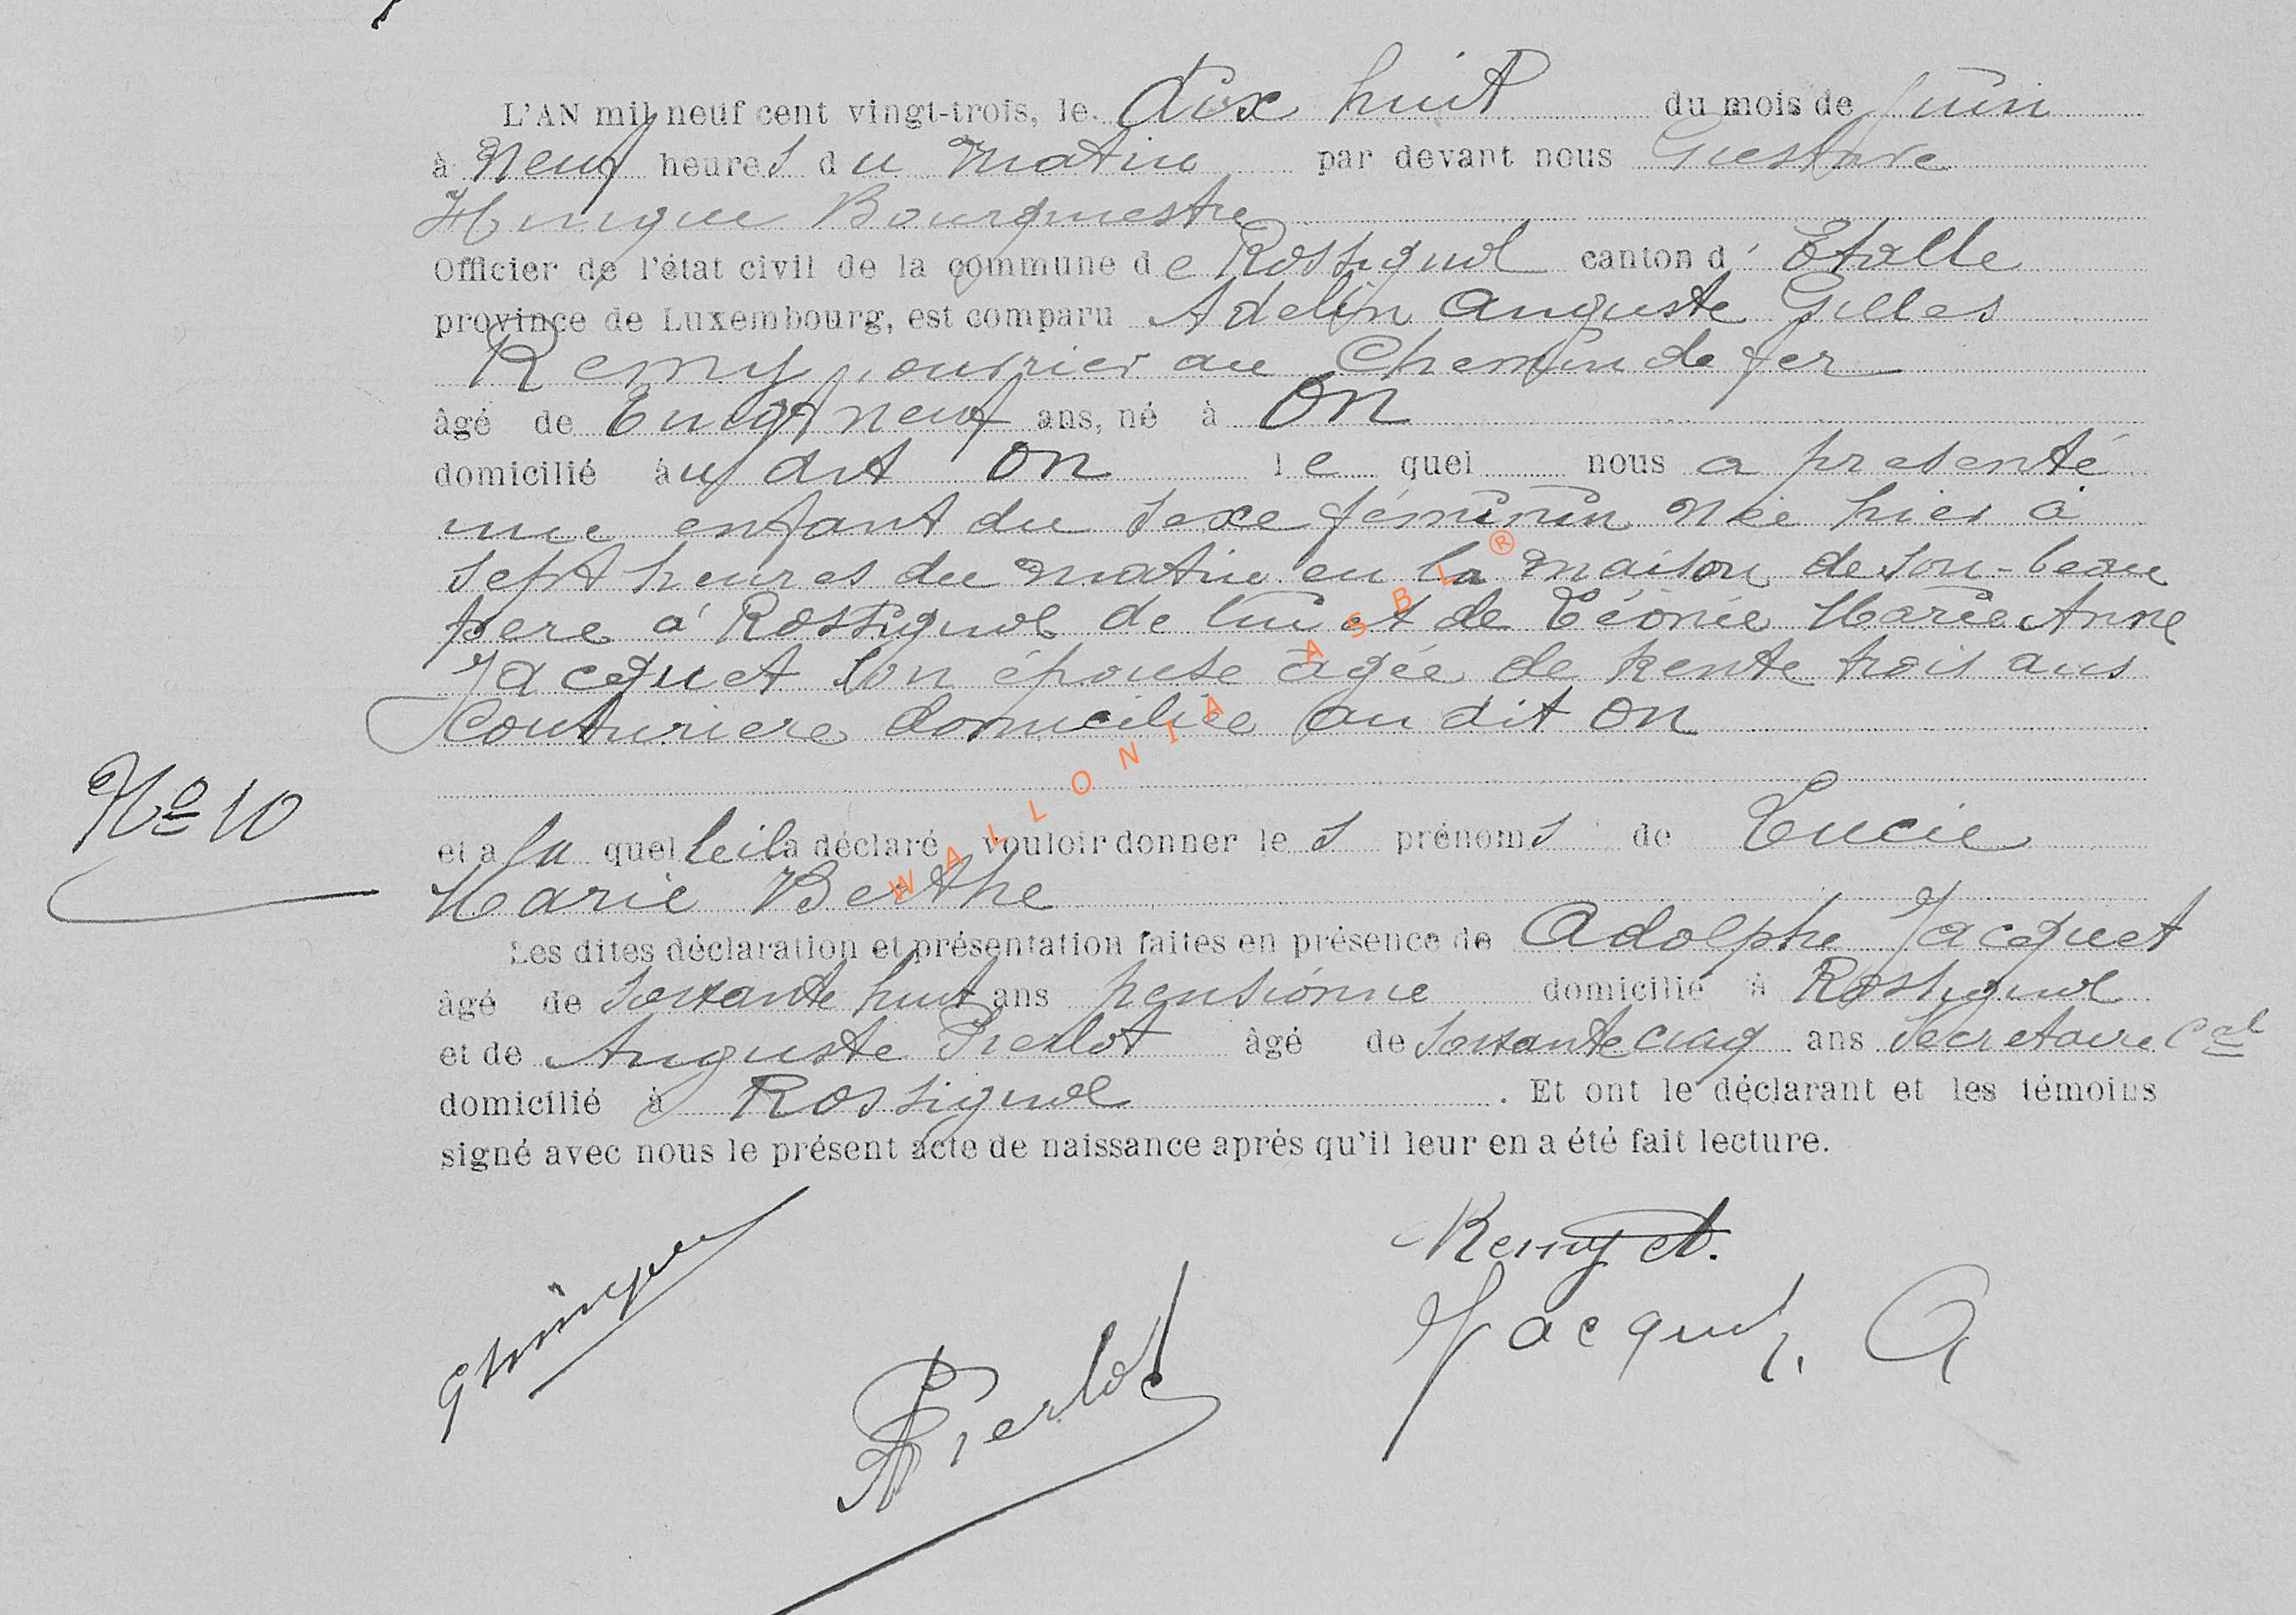 L'AN mil neuf cent vingt-trois, le dix huit du mois de juin
à neuf heures du matin par devant nous Gustave
Hinque Bourgmestre
Officier de l'état civil de la commune de Rossignol canton d'Etalle
province de Luxembourg, est comparu Adelin Auguste Gilles
Remy, ouvrier au Chemin de fer
âgé de Vingt neuf ans, né à On
domicilié au dit On lequel nous a presenté
une enfant du sexe féminin née hier à
sept heures du matin en la maison de son-beau
pere à Rossignol de lui et de Léonie Marie Anne
Jacquet son épouse agée de trente trois ans
Couturiere domiciliée au dit On
No 10
et a la quelle il a déclaré vouloir donner les prénoms de Lucie
Marie Berthe
Les dites déclaration et présentation faites en présence de Adolphe Jacquet
âgé de soixante huit ans pensionné domicilié à Rossignol
et de Auguste Pierlot âgé de soixante cinq ans Secretaire Cal
domicilié à Rossignol . Et ont le déclarant et les témoins
signé avec nous le présent acte de naissance après qu'il leur en a été fait lecture.
Remy A.
GHinque
Jacquet. A
APierlot
WALLONIA ASBL ®